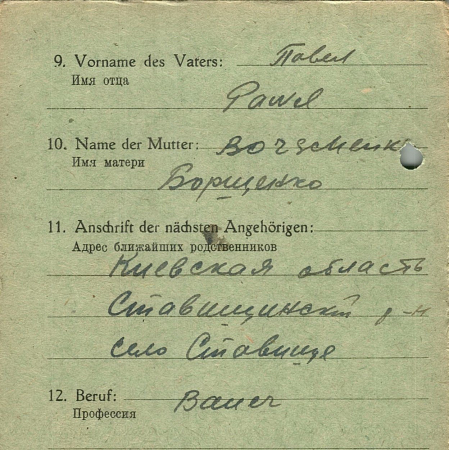 9. Vorname des Vaters: Павел
Имя отца
Pawel
10. Name der Mutter:
Имя матери
Борщенко
11. Anschrift der nächsten Angehörigen:
Адрес ближайших родственников
Киевская область
Ставищинский р-н
село Ставище
12. Beruf: Bauer
Профессия